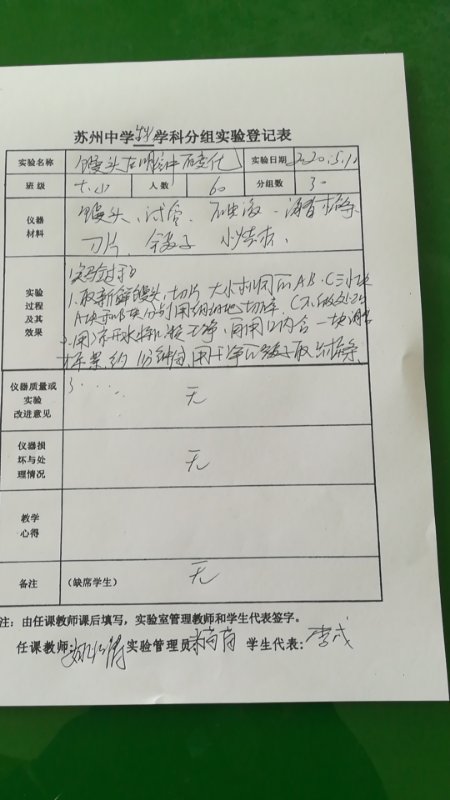 苏州中学 学科分组实验登记表
实验名称 馒头在口腔中的变化 实验日期 2020.5.12
班级 人数 60 分组数 30
仪器
材料
馒头、试管、碘液、消毒棉絮
刀片、镊子 小烧杯、
实验
过程
及其
效果
实验过程
1.取新鲜馒头,切片 大小相同的A、B、C三小块
A块和B块分别用刀细细地切碎 C不做处理
2.用凉开水将口漱干净,再用口内含一块消毒
棉絮,约1分钟后,用干净的镊子取出棉絮、
3......
仪器质量或
实验
改进意见
无
仪器损
坏与处
理情况
无
教学
心得
备注 (缺席学生) 无
注:由任课教师课后填写,实验室管理教师和学生代表签字。
任课教师: 实验管理员 学生代表: 李成